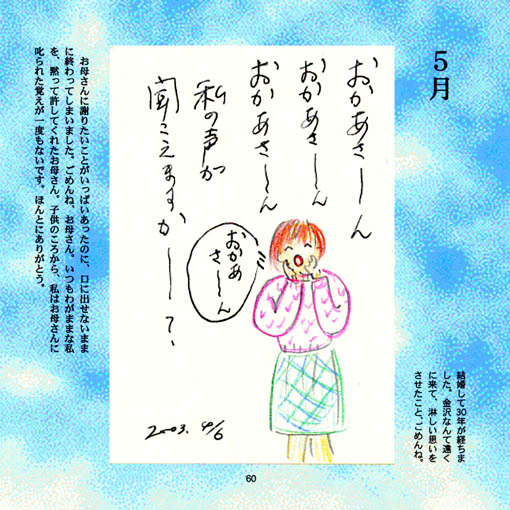 5月
おかあさーん
おかあさーん
おかあさーん
私の声が
聞こえますかー?、
おかあ
さーん
2003. 4/6
結婚して30年が経ちま
した。金沢なんて遠く
に来て、淋しい思いを
させたこと、ごめんね。
お母さんに謝りたいことがいっぱいあったのに、口に出せないまま
に終わってしまいました。ごめんね、お母さん。いつもわがままな私
を、黙って許してくれたお母さん。子供のころから、私はお母さんに
叱られた覚えが一度もないです。ほんとにありがとう。
60